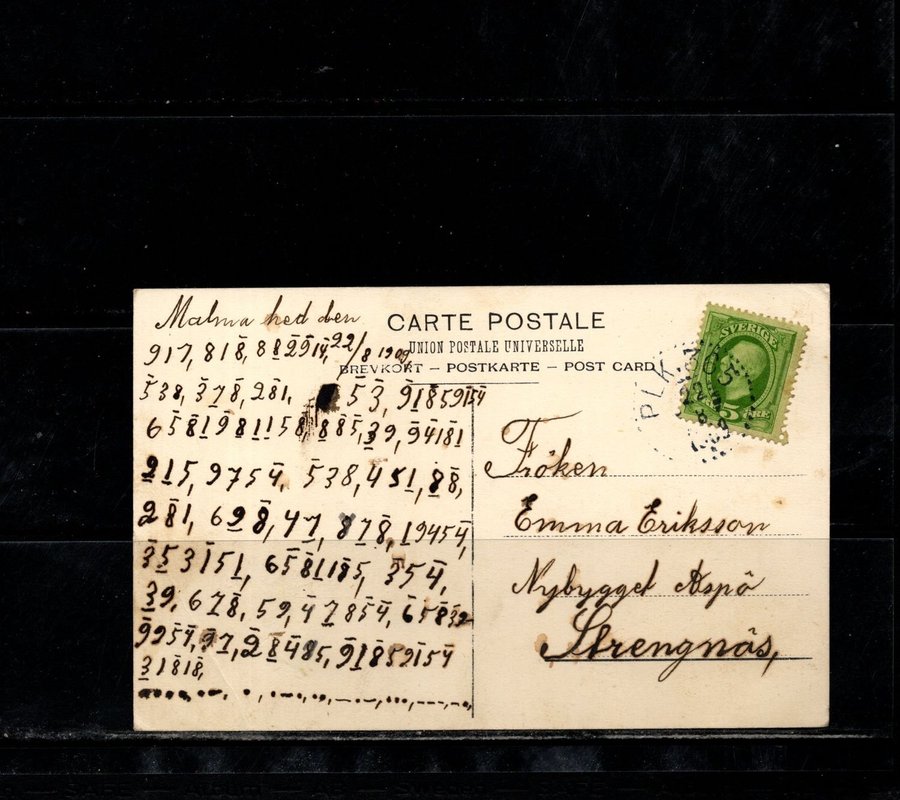 Malma hed den
22/8 1909.
917, 818, 882914,
538, 378, 281, 53, 91859154
6581981158, 885, 39, 94181
215, 9754, 538, 451, 88,
281, 698, 47, 878, 19454,
353151, 6581185, 354,
39, 678, 59, 47854, 65839
9954, 97, 28485, 91859154
31818,
CARTE POSTALE
UNION POSTALE UNIVERSELLE
BREVKORT – POSTKARTE – POST CARD
SVERIGE
5 ÖRE
PLK 305
22 8 1909
Fröken
Emma Eriksson
Nybygget Aspö
Strengnäs,